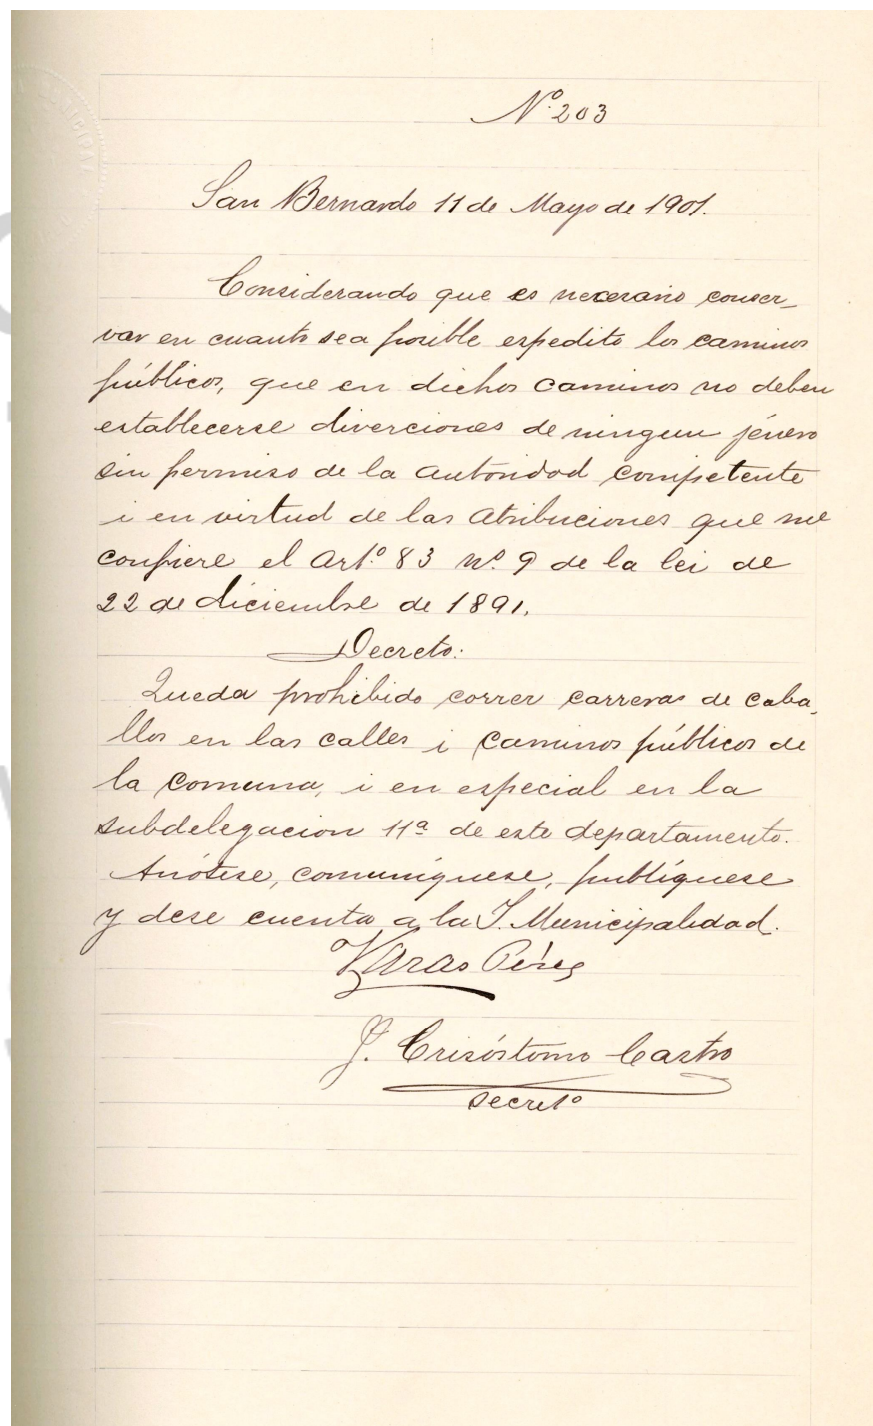 Nº 203
San Bernardo 11 de Mayo de 1901.
Considerando que es necesario conser-
var en cuanto sea posible espedito los caminos
públicos, que en dichos caminos no deben
establecerse diverciones de ningun jénero
sin permiso de la autoridad competente
i en virtud de las atribuciones que me
confiere el Artº 83 nº 9 de la lei de
22 de diciembre de 1891.
Decreto:
Queda prohibido correr carreras de caba-
llos en las calles i caminos públicos de
la comuna, i en especial en la
subdelegacion 11ª de este departamento.
Anótese, comuníquese, publíquese
y dese cuenta a la I. Municipalidad.
Varas Pérez
J. Crisóstomo Castro
secretº